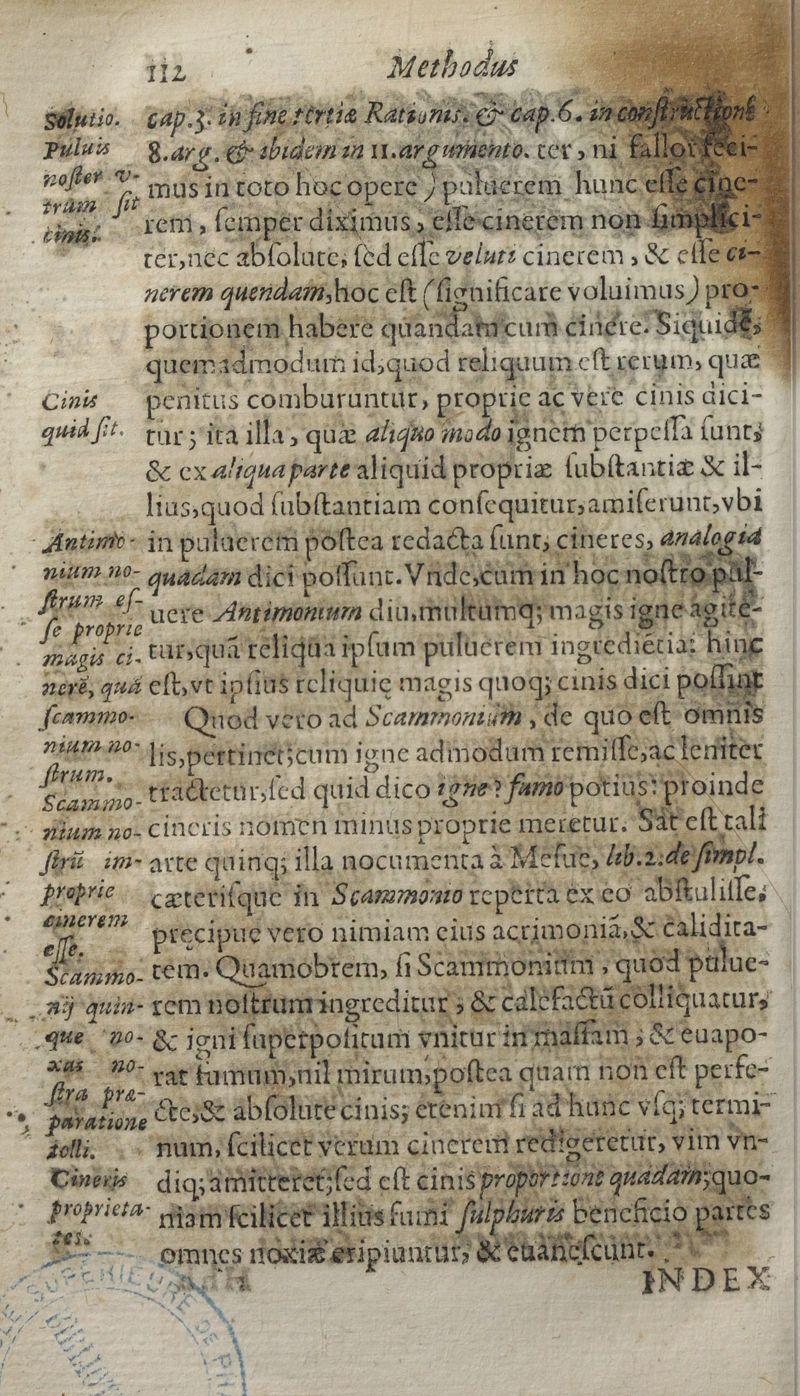 112 Methodus
cap.3. in fine tertiæ Rationis. & cap.6. in constructione
8.arg. & ibidem in 11.argumento. ter, ni fallor feci-
mus in toto hoc opere) puluerem hunc esse cine-
rem, semper diximus, esse cinerem non simplici-
ter, nec absolute, sed esse veluti cinerem, & esse ci-
nerem quendam, hoc est (significare voluimus) pro-
portionem habere quandam cum cinere. Siquidē,
quemadmodum id, quod reliquum est rerum, quæ
penitus comburuntur, proprie ac vere cinis dici-
tur; ita illa, quæ aliquo modo ignem perpessa sunt;
& ex aliqua parte aliquid propriæ substantiæ & il-
lius, quod substantiam consequitur, amiserunt, vbi
in puluerem postea redacta sunt, cineres, analogia
quadam dici possunt. Vnde, cum in hoc nostro pul-
uere Antimonium diu, multumq; magis igne agite-
tur, quā reliqua ipsum puluerem ingrediētia: hinc
est, vt ipsius reliquię magis quoq; cinis dici possint
Quod vero ad Scammonium, de quo est omnis
lis, pertinet; cum igne admodum remisse, ac leniter
tractetur, sed quid dico igne? fumo potius: proinde
cineris nomen minus proprie meretur. Sat est tali
arte quinq; illa nocumenta à Mesue, lib.2. de simpl.
cæterisque in Scammonio reperta ex eo abstulisse;
precipue vero nimiam eius acrimoniā, & calidita-
tem. Quamobrem, si Scammonium, quod pulue-
rem nostrum ingreditur, & calefactū colliquatur,
& igni superpositum vnitur in massam; & euapo-
rat fumum, nil mirum, postea quam non est perfe-
cte, & absolute cinis; etenim si ad hunc vsq; termi-
num, scilicet verum cinerem redigeretur, vim vn-
diq; amitteret; sed est cinis proportione quadam; quo-
niam scilicet illius fumi sulphuris beneficio partes
omnes noxiæ eripiuntur, & euanescunt.
INDEX
Solutio.
Puluis
noster v-
trum sit
cinis.
Cinis
quid sit.
Antimo-
nium no-
strum es-
se proprie
magis ci-
nerē, quā
scammo-
nium no-
strum.
Scammo-
nium no-
strū im-
proprie
cinerem
esse.
Scammo-
nij quin-
que no-
xas no-
stra præ-
paratione
tolli.
Cineris
proprieta-
tes.